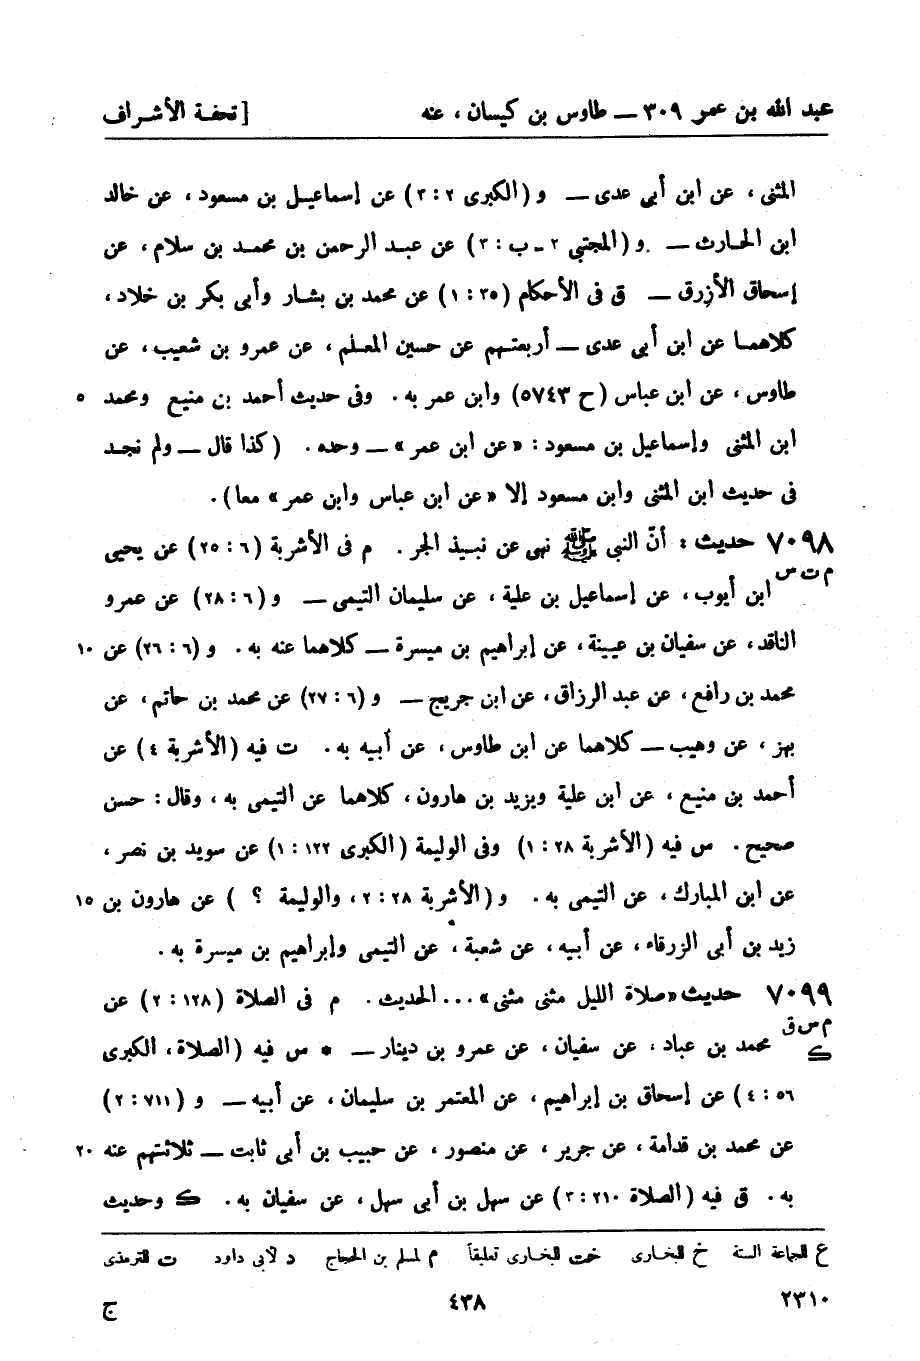 عبد الله بن عمر ٣٠٩ — طاوس بن كيسان ، عنه [ تحفة الأشراف
المثنى ، عن ابن أبي عدى — و (الكبرى ٢ : ٣) عن إسماعيل بن مسعود ، عن خالد
ابن الحارث — و (المجتبي ٢ - ب : ٣) عن عبد الرحمن بن محمد بن سلام ، عن
إسحاق الأزرق — ق فى الأحكام (٣٥ : ١) عن محمد بن بشار وأبي بكر بن خلاد ،
كلاهما عن ابن أبي عدى — أربعتهم عن حسين المعلم ، عن عمرو بن شعيب ، عن
طاوس ، عن ابن عباس (ح ٥٧٤٣) وابن عمر به . وفى حديث أحمد بن منيع ومحمد ٥
ابن المثنى وإسماعيل بن مسعود : «عن ابن عمر» — وحده . (كذا قال — ولم نجد
فى حديث ابن المثنى وابن مسعود إلا «عن ابن عباس وابن عمر» معا) .
٧٠٩٨ حديث : أنّ النبي ﷺ نهى عن نبيذ الجر . م فى الأشربة (٦ : ٢٥) عن يحيى
م ت س ابن أيوب ، عن إسماعيل بن علية ، عن سليمان التيمى — و (٦ : ٢٨) عن عمرو
الناقد ، عن سفيان بن عيينة ، عن إبراهيم بن ميسرة — كلاهما عنه به . و (٦ : ٢٦) عن ١٠
محمد بن رافع ، عن عبد الرزاق ، عن ابن جريج — و (٦ : ٢٧) عن محمد بن حاتم ، عن
بهز ، عن وهيب — كلاهما عن ابن طاوس ، عن أبيه به . ت فيه (الأشربة ٤) عن
أحمد بن منيع ، عن ابن علية ويزيد بن هارون ، كلاهما عن التيمى به ، وقال : حسن
صحيح . س فيه (الأشربة ٢٨ : ١) وفى الوليمة (الكبرى ١٢٢ : ١) عن سويد بن نصر ،
عن ابن المبارك ، عن التيمى به . و (الأشربة ٢٨ : ٢ ، والوليمة ؟ ) عن هارون بن ١٥
زيد بن أبى الزرقاء ، عن أبيه ، عن شعبة ، عن التيمى وإبراهيم بن ميسرة به .
٧٠٩٩ حديث «صلاة الليل مثنى مثنى» ... الحديث . م فى الصلاة (١٢٨ : ٢) عن
م س ق محمد بن عباد ، عن سفيان ، عن عمرو بن دينار — * س فيه (الصلاة ، الكبرى
ك ٥٦ : ٤) عن إسحاق بن إبراهيم ، عن المعتمر بن سليمان ، عن أبيه — و (٧١١ : ٢)
عن محمد بن قدامة ، عن جرير ، عن منصور ، عن حبيب بن أبى ثابت — ثلاثتهم عنه ٢٠
به . ق فيه (الصلاة ٢١٠ : ٣) عن سهل بن أبى سهل ، عن سفيان به . ك وحديث
ع للجماعة الستة خ للبخارى خت للبخارى تعليقاً م لمسلم بن الحجاج د لأبي داود ت للترمذى
٢٣١٠ ٤٣٨ ج